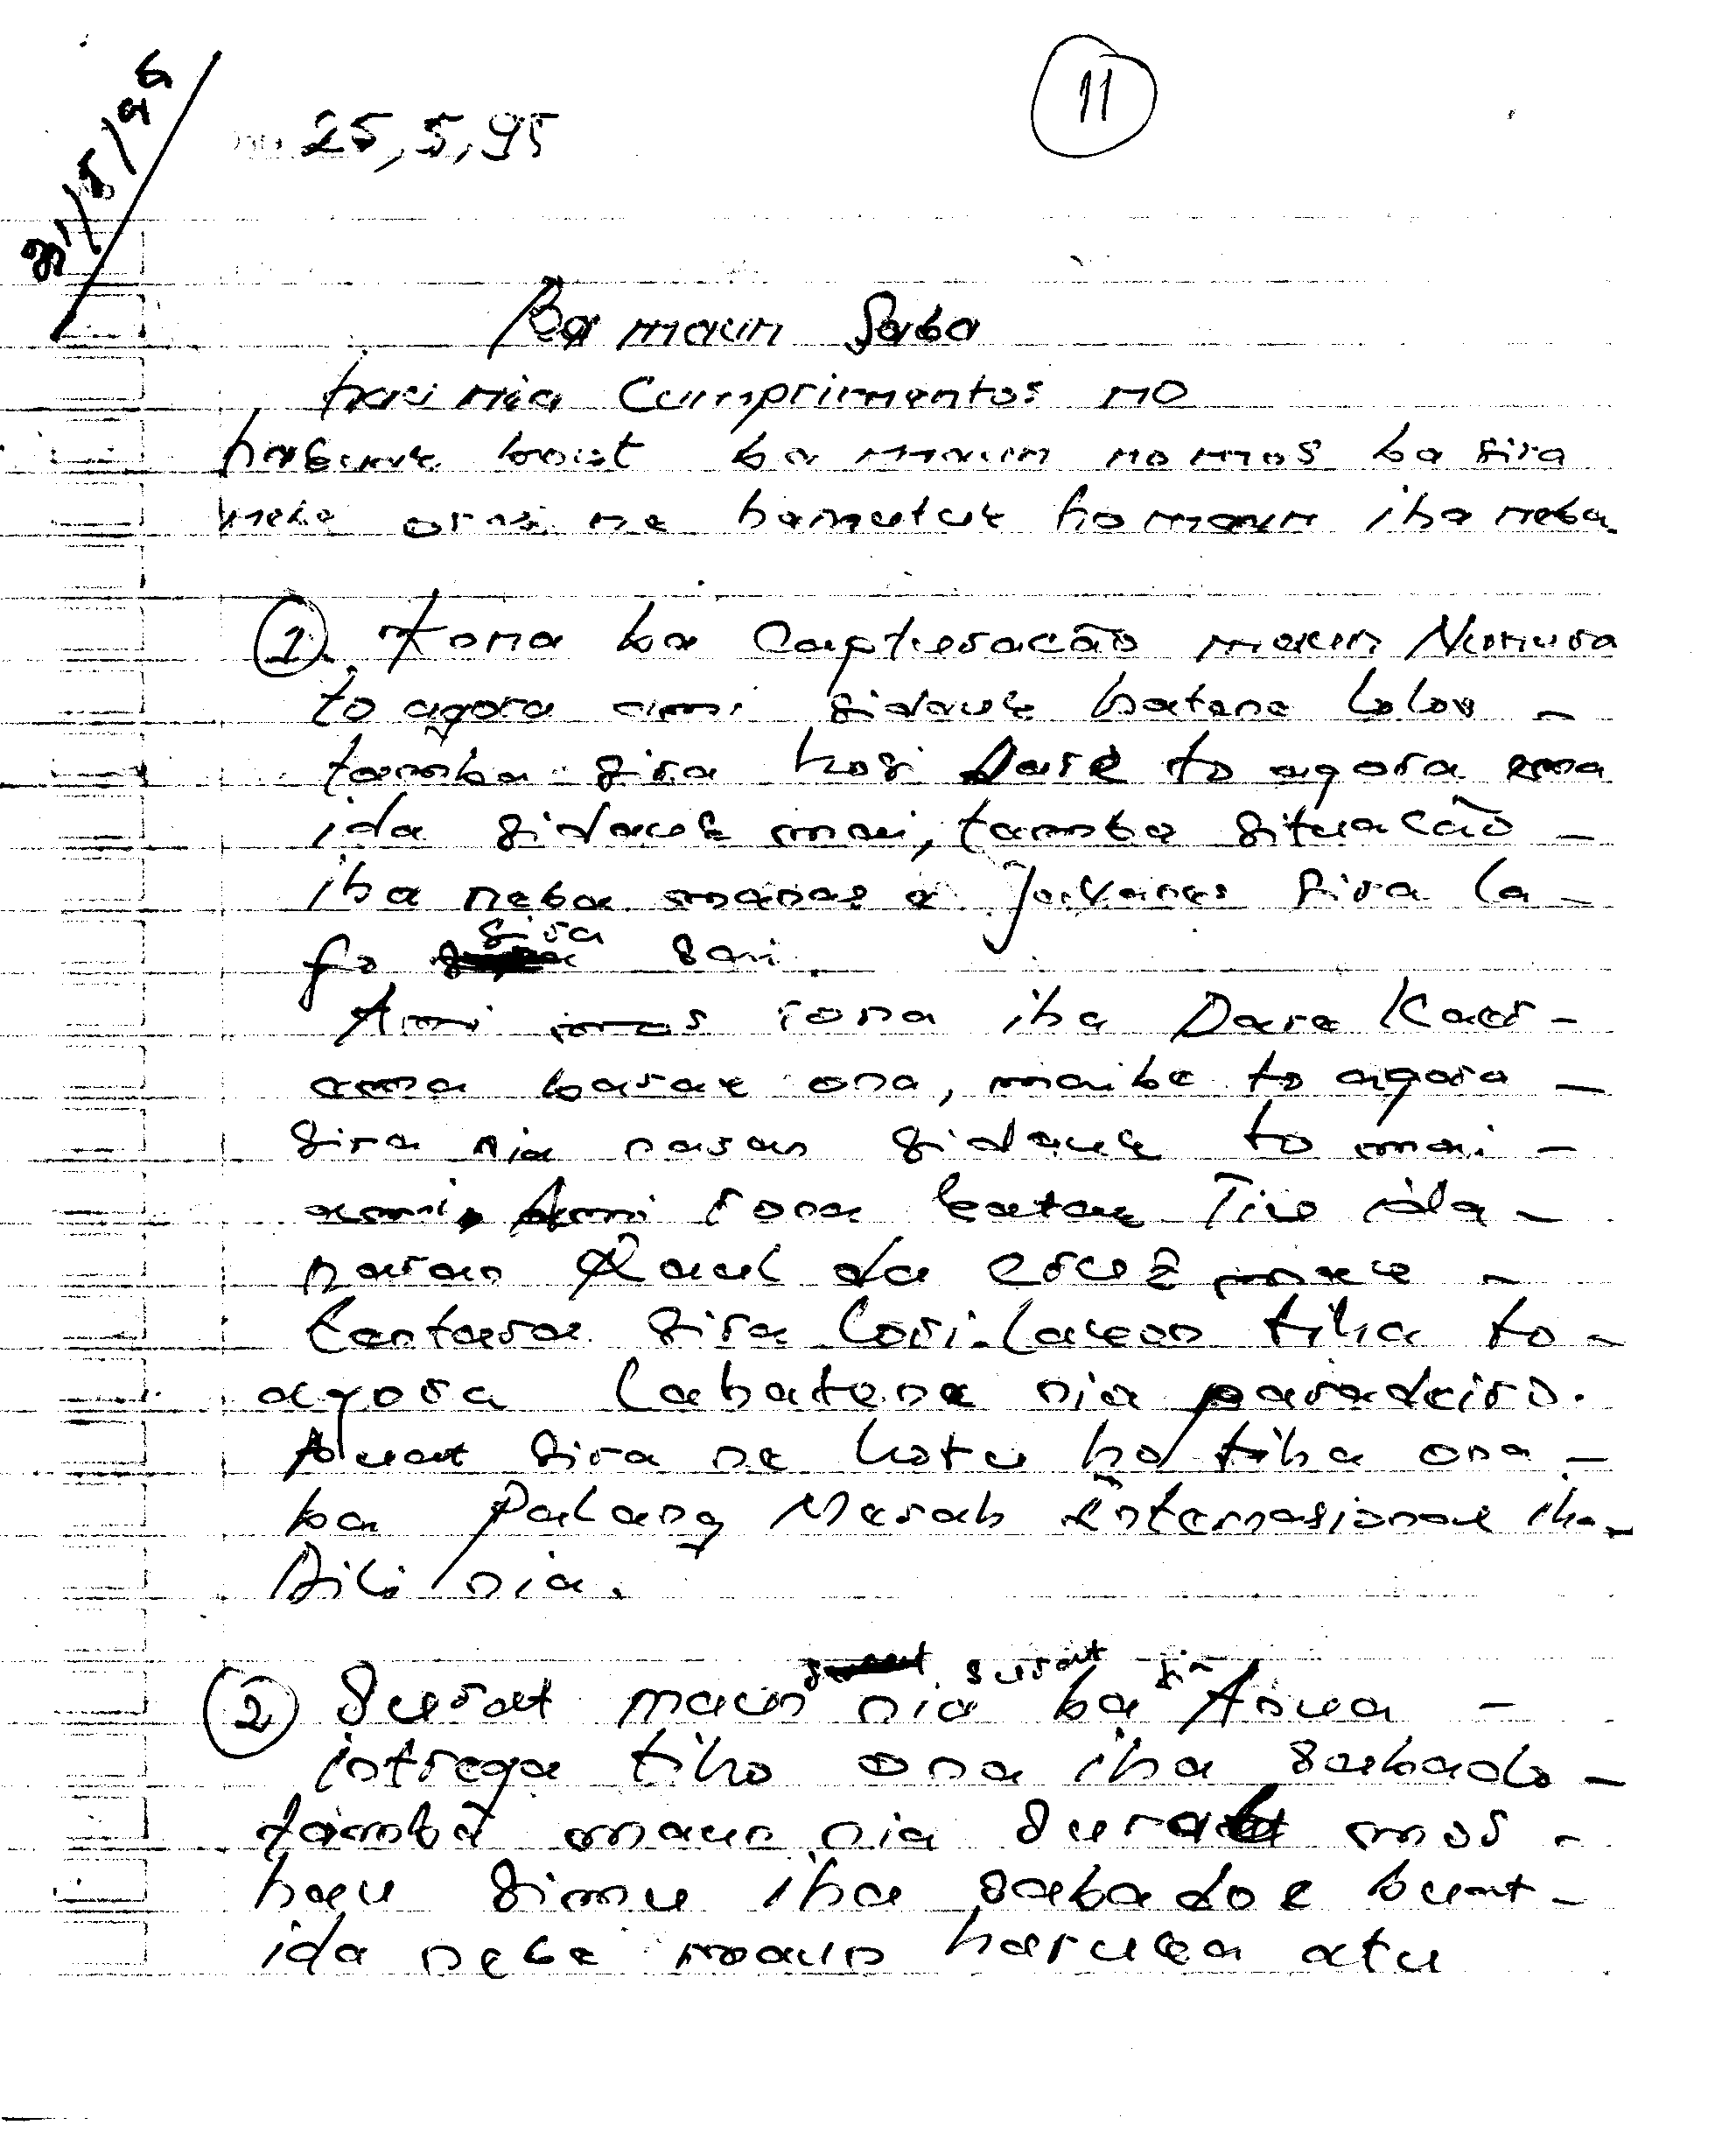 11
31/5/95
25,5,95
Ba maun Saba
hau nia Cumprimentos no
hakuak boot ba maun no mos ba sira
nebe oras ne hamutuk ho maun iha neba
1. Kona ba Capturacão maun Nunura
to agora ami sidauk hatene lolos -
tamba sira hosi Dare to agora ema
ida sidauk mai, tamba situacão -
iha neba manas e Jovenes sira la -
fo sira sai.
Ami mos rona iha Dare Kaer -
ema barak ona, maibe to agora -
sira nia naran sidauk to mai -
ami, Ami rona katak Tiu ida -
naran Raul da Cruz mak -
tentara sira lori lakon tiha to -
agora la hatene nia paradeiro.
sira ne hotu ho tiha ona -
ba Palang Merah Internasional iha
Dili nia.
2 Surat maun nia surat ba sira Ansua -
intrega tiho ona iha Sabado -
tamba maun nia surat mos -
hau simu iha sabado e buat -
ida nebe maun haruka atu